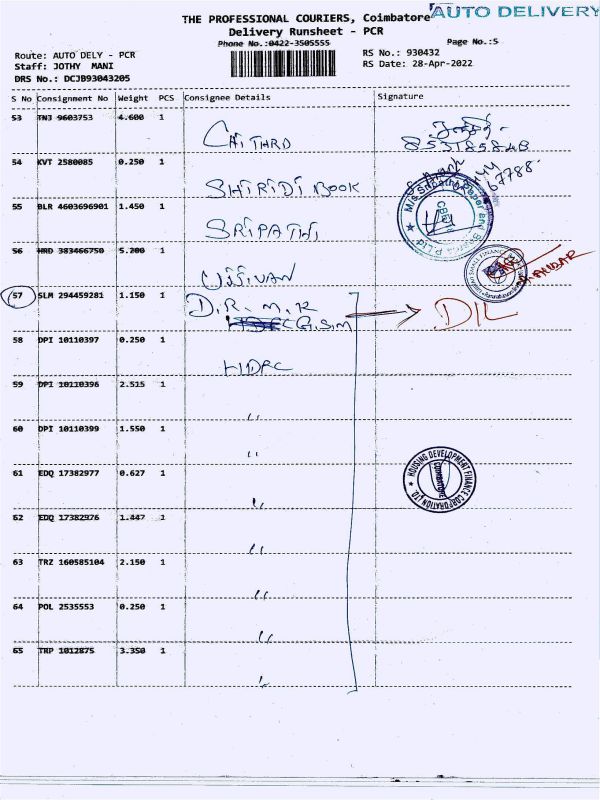 THE PROFESSIONAL COURIERS, Coimbatore
AUTO DELIVERY
Delivery Runsheet - PCR
Phone No.:0422-3505555
Page No.:5
Route: AUTO DELY - PCR
RS No.: 930432
Staff: JOTHY MANI
RS Date: 28-Apr-2022
DRS No.: DCJB93043205
S No Consignment No Weight PCS Consignee Details Signature
53 TNJ 9603753 4.600 1
CHITHRD
54 KVT 2580085 0.250 1
SHIRIDI BOOK
67788
55 BLR 4603696901 1.450 1
SRIPATHI
56 HRD 383466750 5.200 1
UJJIVAN
57 SLM 294459281 1.150 1
D.R.M.R
G.S.M
DIL
58 DPI 10110397 0.250 1
HDFC
59 DPI 10110396 2.515 1
"
60 DPI 10110399 1.550 1
"
HOUSING DEVELOPMENT FINANCE CORPORATION LTD.
61 EDQ 17382977 0.627 1
"
62 EDQ 17382976 1.447 1
"
63 TRZ 160585104 2.150 1
"
64 POL 2535553 0.250 1
"
65 TRP 1012875 3.350 1
"